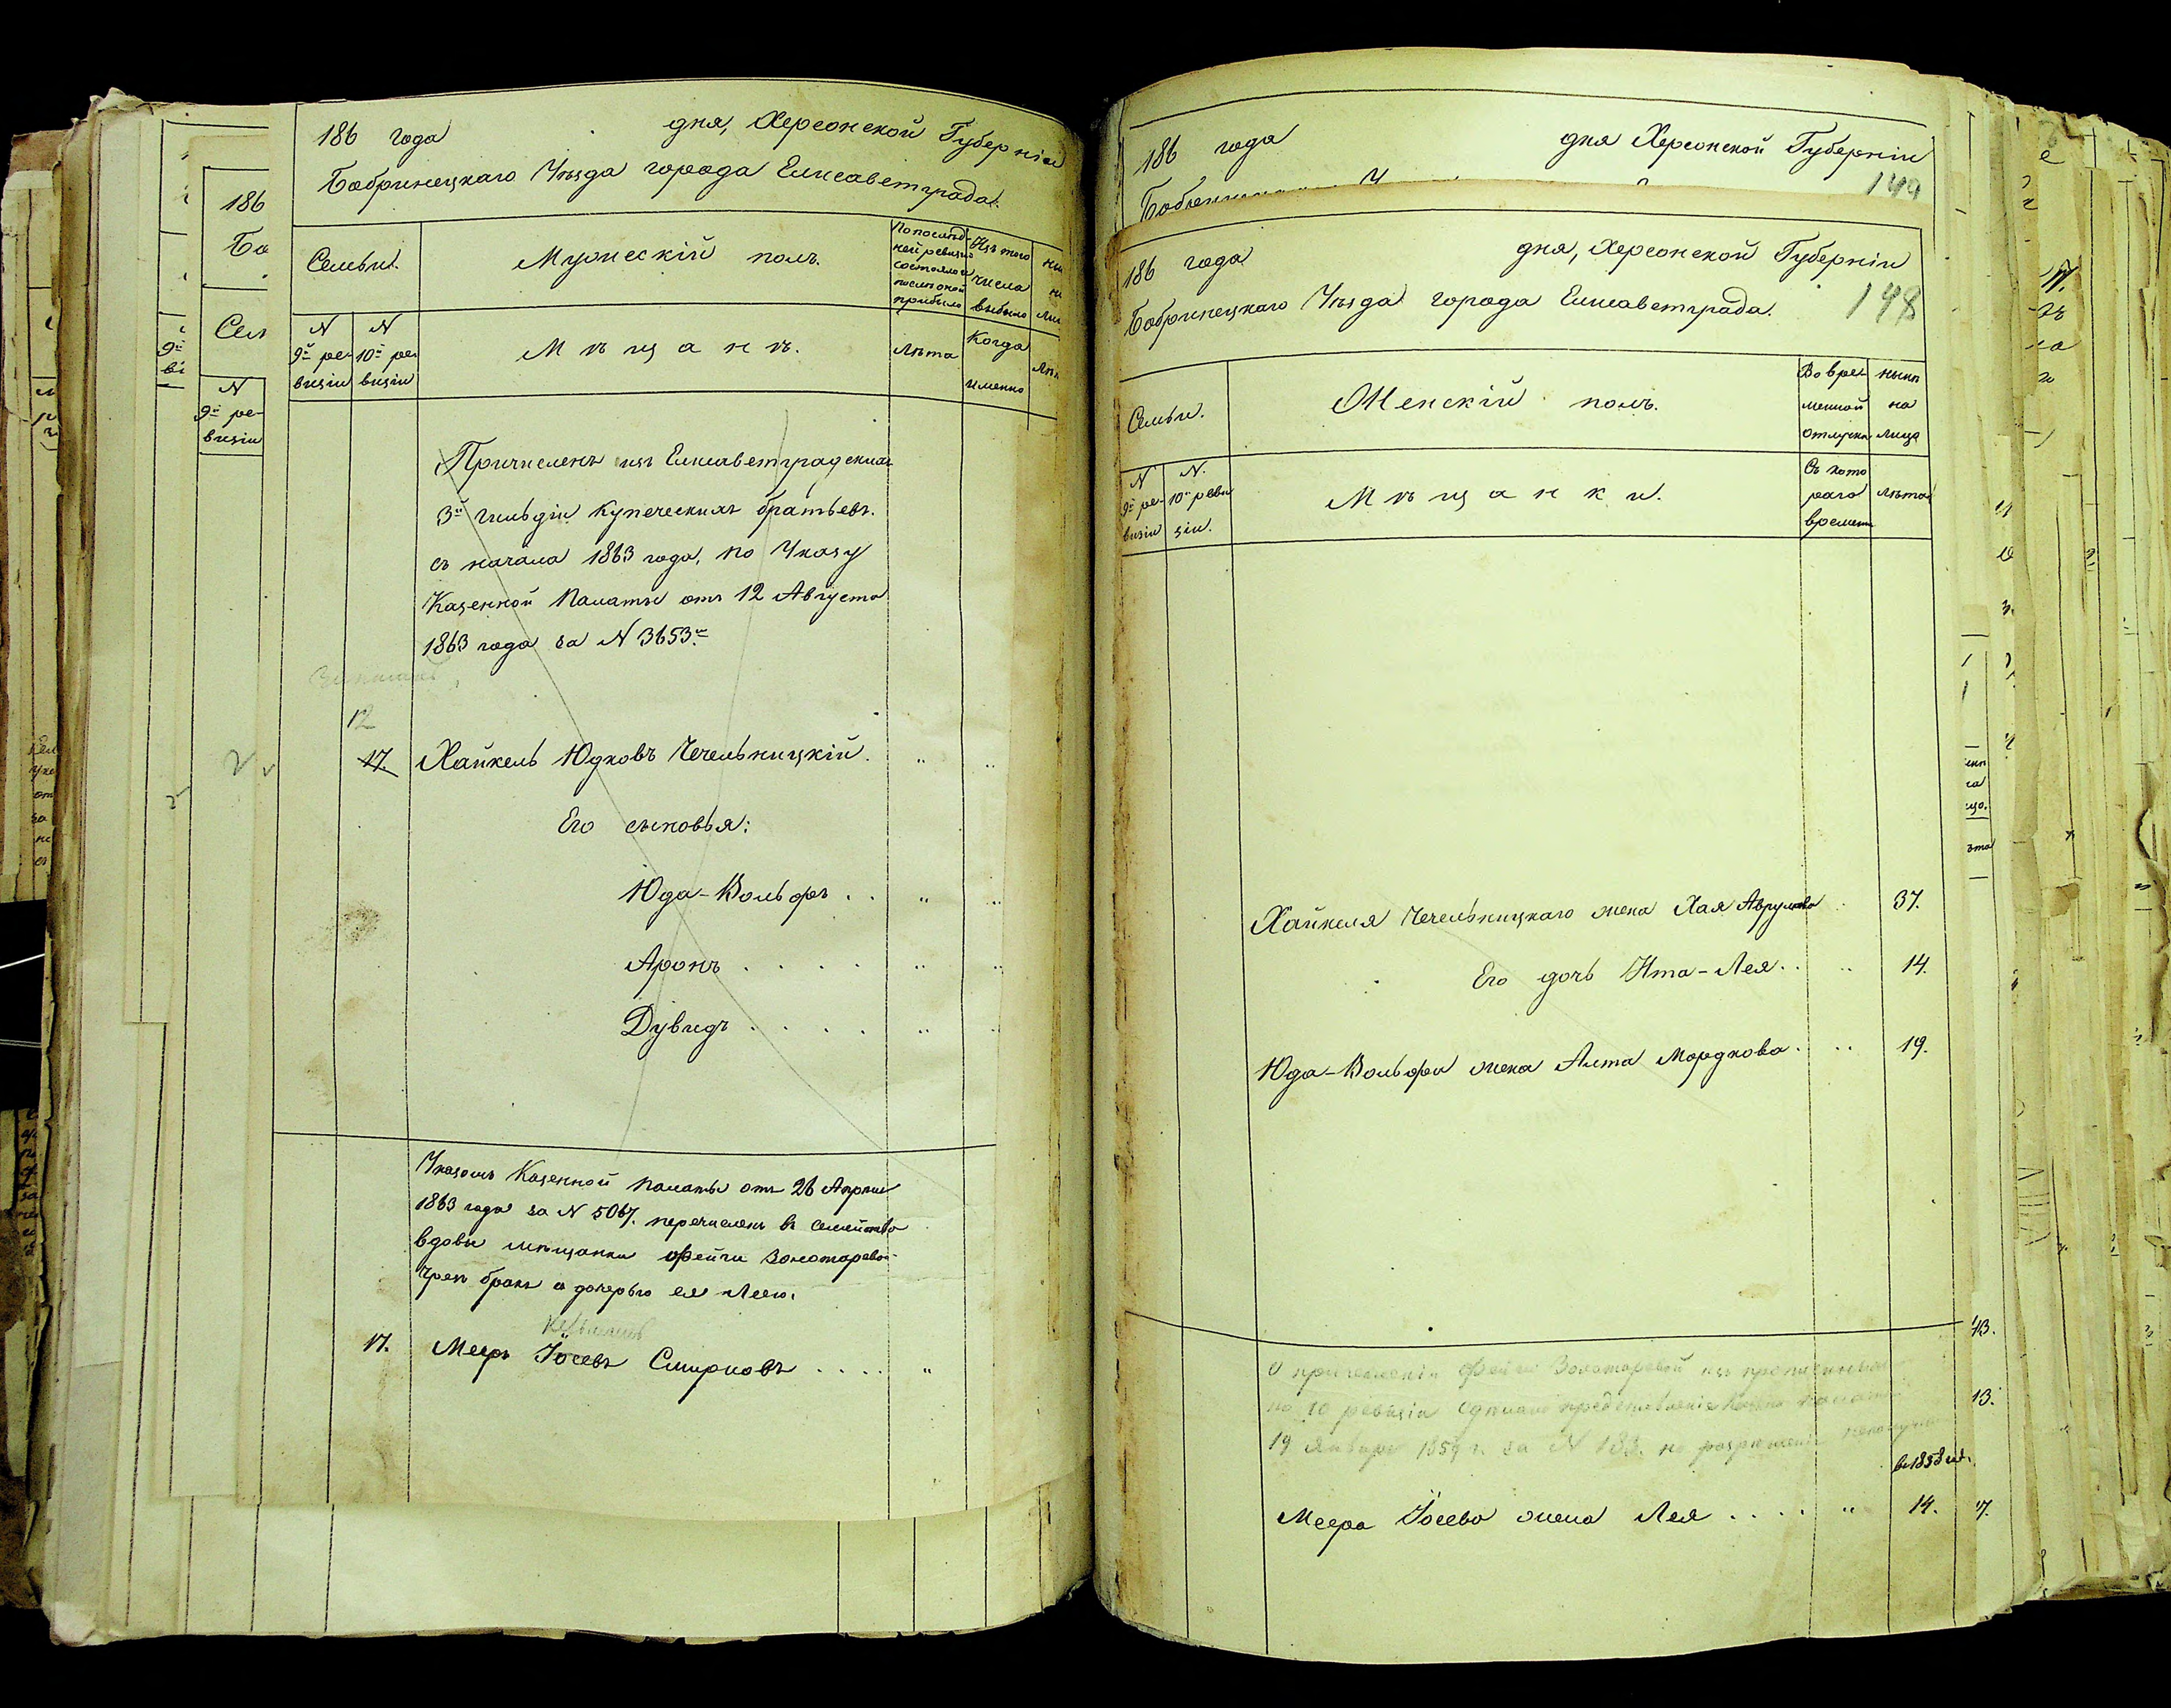 186 года дня, Херсонской Губерніи
Бобринецкаго Уѣзда города Елисаветграда.
Семьи.
Мужескій полъ.
По послѣд-
ней ревизіи
состояло и
послѣ оной
прибыло
Изъ того
числа
выбыло
N
9й ре-
визіи
N
10й ре-
визіи
Мѣщанъ.
Лѣта
Когда
именно
Причисленъ изъ Елисаветградскихъ
3й гильдіи купеческихъ братьевъ.
съ начала 1863 года, по Указу
Казенной Палаты отъ 12 Августа
1863 года за N 3653м
12
17. Хайкель Юдковъ Чечельницкій. " "
Его сыновья:
Юда-Вольфъ . . " "
Аронъ . . . . " "
Дувидъ . . . . " "
Указомъ Казенной Палаты отъ 26 Апрѣля
1863 года за N 5067. перечисленъ въ семейство
вдовы мѣщанки Фейги Золотаревой
чрез бракъ с дочерью ея Леею.
17. Мееръ Іосевъ Смирновъ . . . . "
186
Бо
Сем
N
9й ре-
визіи
186 года дня Херсонской Губерніи
149
186 года дня, Херсонской Губерніи
Бобринецкаго Уѣзда города Елисаветграда.
148
Семьи.
Женскій полъ.
Во вре-
менной
отлучкѣ
нынѣ
на
лицо
N
9й ре-
визіи
N.
10й реви
зіи.
Мѣщанки.
Съ кото
раго
времени
лѣта
Хайкеля Чечельницкаго жена Хая Аврумова . 37.
Его дочь Ита-Лея . . " 14.
Юда-Вольфа жена Алта Мордкова . " 19.
О причисленіи Фейги Золотаревой изъ
по 10 ревизіи сдѣлано представленіе Казен. Палатѣ
19 Января 1859 г. за N 183. но разрѣшенія
въ 1858 год.
Меера Іосева жена Лея . . . . " 14.